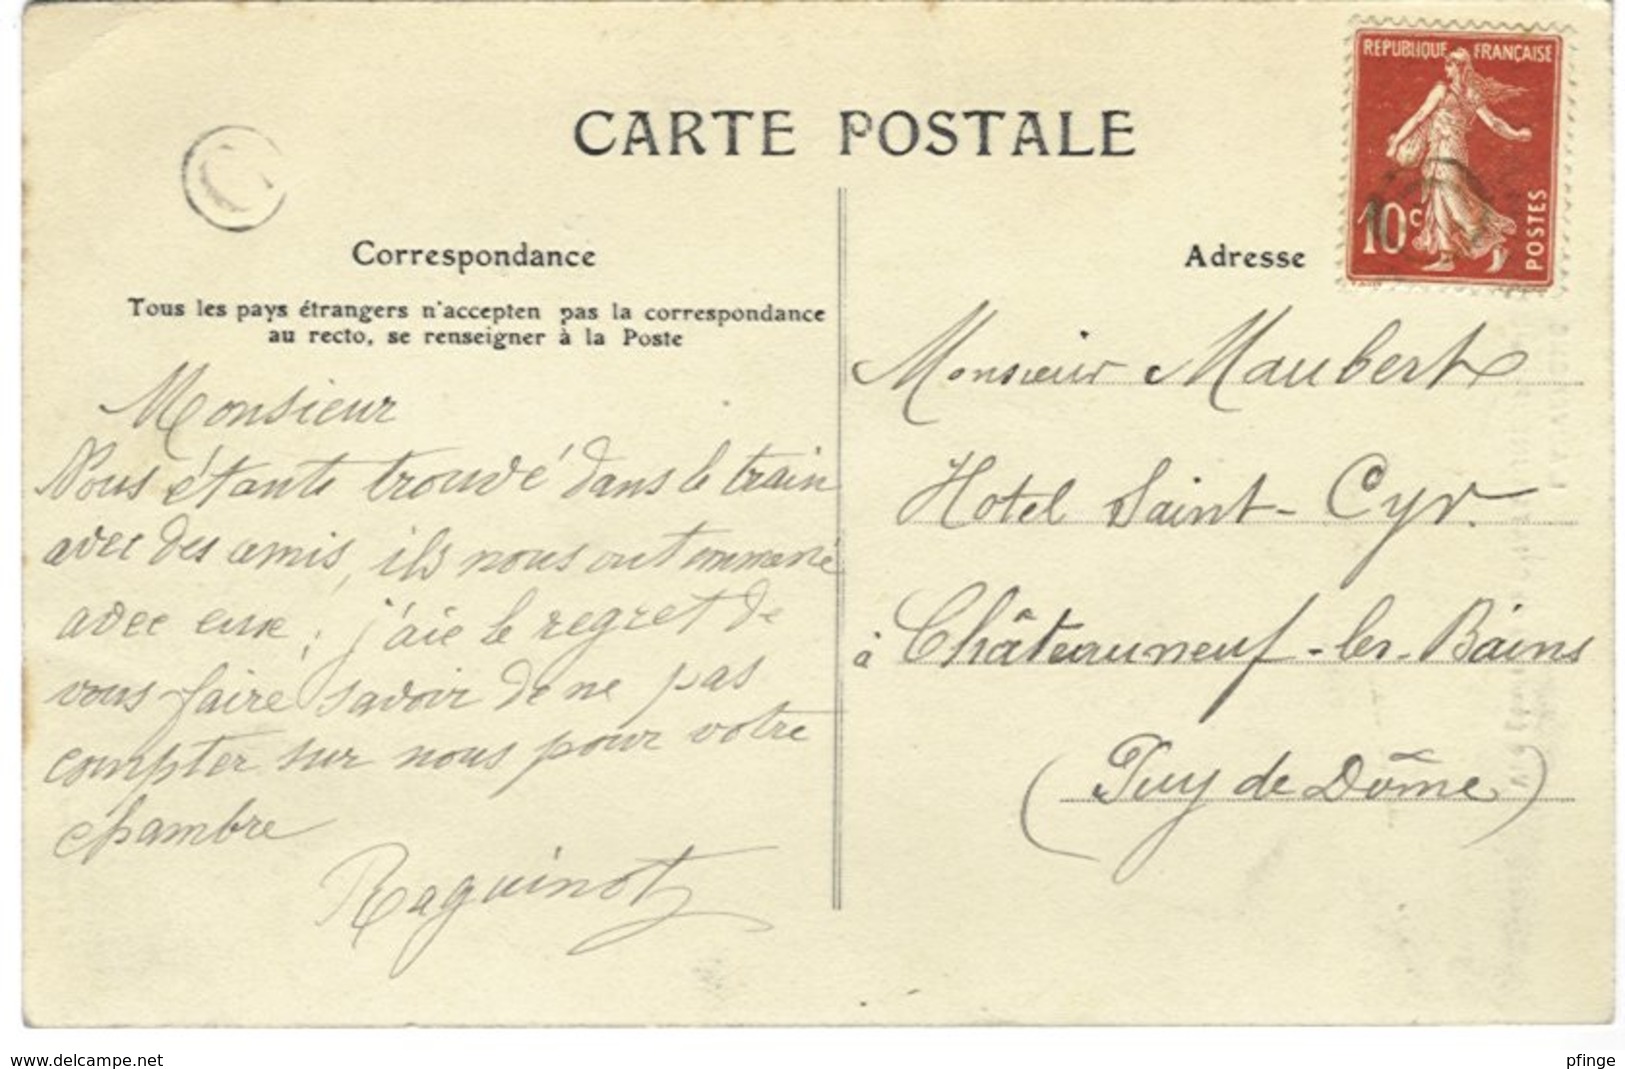 CARTE POSTALE
REPUBLIQUE FRANÇAISE
10c
POSTES
Correspondance
Tous les pays étrangers n'accepten pas la correspondance
au recto, se renseigner à la Poste
Monsieur
Nous étants trouvé dans le train
avec des amis, ils nous ont emmené
avec eux, j'aie le regret de
vous faire savoir de ne pas
compter sur nous pour votre
chambre
Raguinot
Adresse
Monsieur Maubert
Hotel Saint-Cyr.
à Châteauneuf-les-Bains
(Puy de Dôme)
www.delcampe.net
pfinge